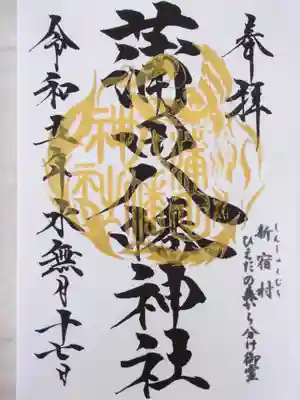 奉拝
しんしゅくむら
新宿村
ひえだの森から分け御霊
蒲田八幡神社
令和五年水無月十七日